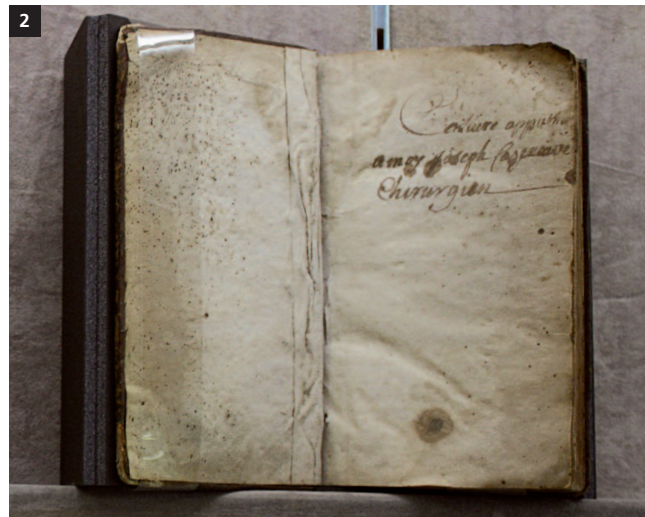 2
Ce livre appartien
a moy Joseph
Chirurgien